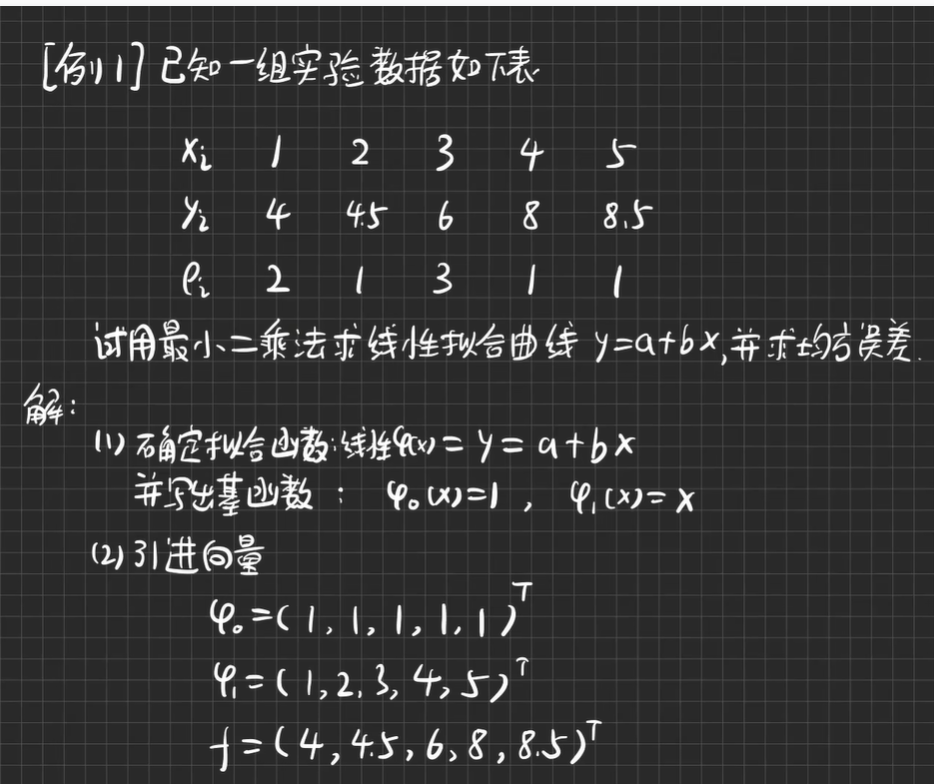 [例1] 已知一组实验数据如下表
xᵢ 1 2 3 4 5
yᵢ 4 4.5 6 8 8.5
ρᵢ 2 1 3 1 1
试用最小二乘法求线性拟合曲线 y=a+bx,并求均方误差.
解:
(1) 确定拟合函数:线性φ(x)=y=a+bx
并写出基函数: φ₀(x)=1, φ₁(x)=x
(2) 引进向量
φ₀=(1,1,1,1,1)ᵀ
φ₁=(1,2,3,4,5)ᵀ
f=(4,4.5,6,8,8.5)ᵀ